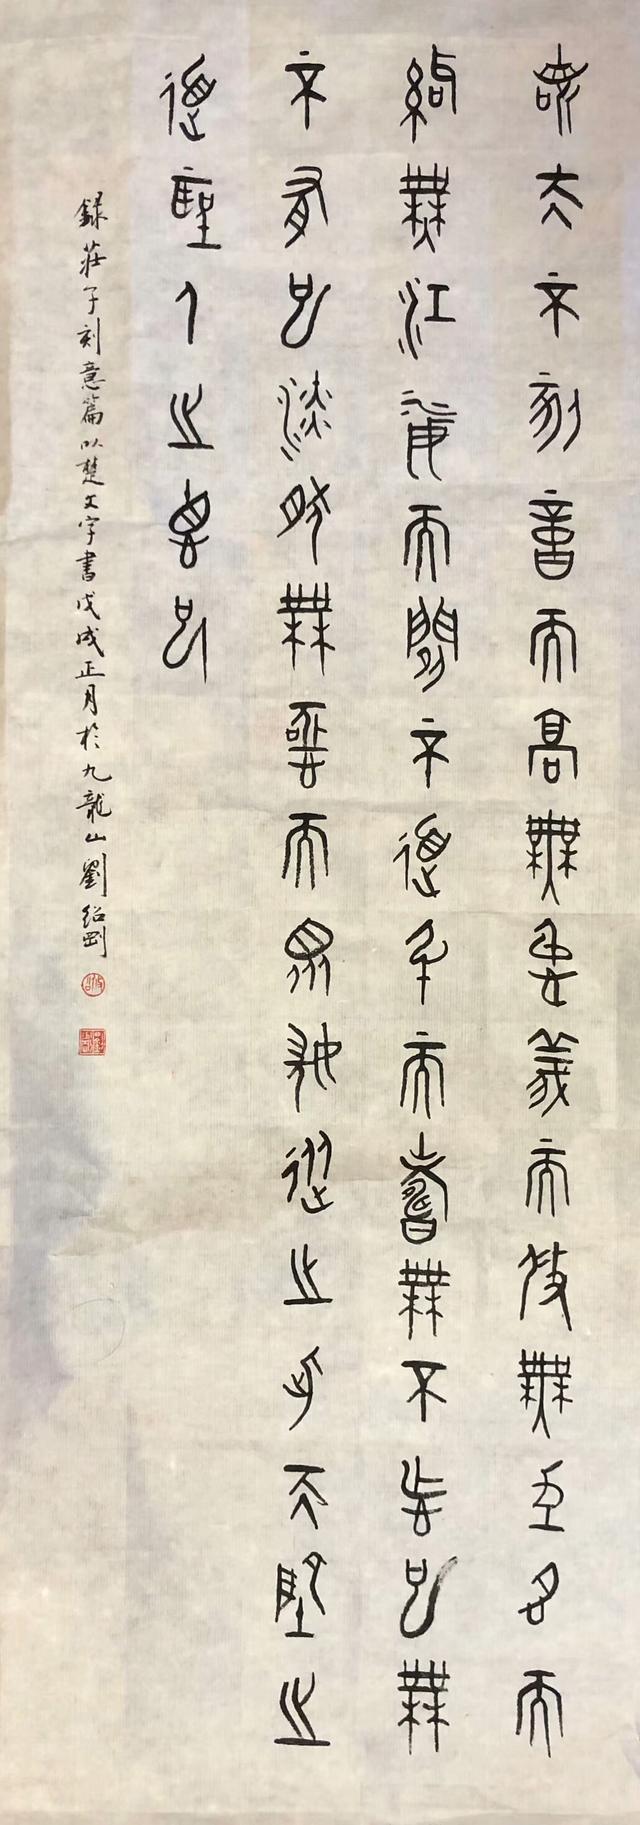 若夫不刻意而高無仁義而修無功名而
治無江海而閒不道引而壽無不忘也無
不有也淡然無極而眾美從之此天地之
道聖人之德也
錄莊子刻意篇以楚文字書戊戌正月於九龍山劉紹剛